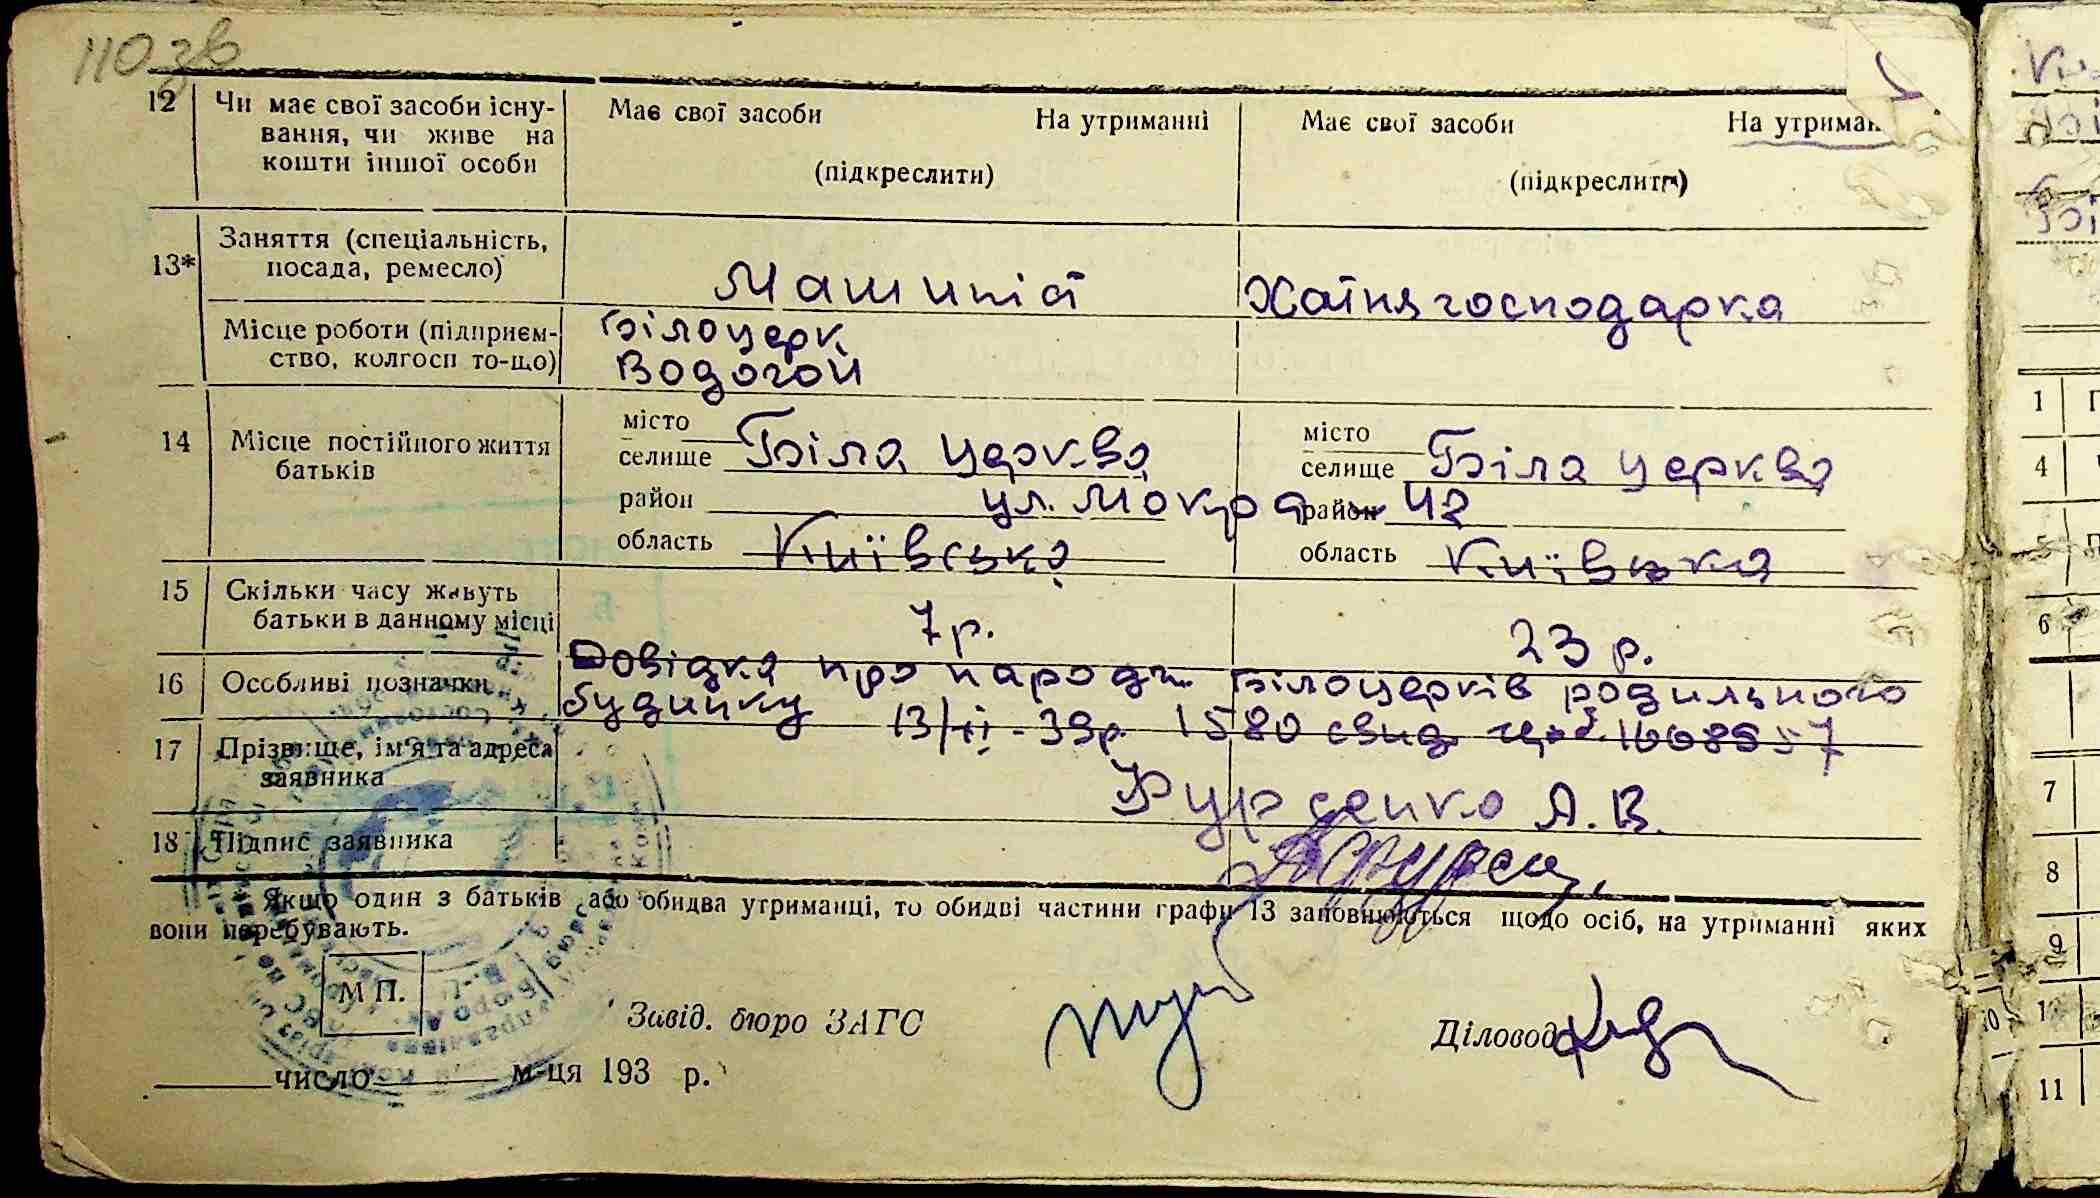 110 зв
12 Чи має свої засоби існу-
вання, чи живе на
кошти іншої особи
Має свої засоби На утриманні
(підкреслити)
Має свої засоби На утриман
(підкреслити)
13* Заняття (спеціальність,
посада, ремесло)
Машиніст Хатня господарка
Місце роботи (підприєм-
ство, колгосп то-що)
Білоцерк
Водогон
14 Місце постійного життя
батьків
місто
селище Біла Церква
район ул. Мокра 42
область Київська
місто
селище Біла Церква
район
область Київська
15 Скільки часу живуть
батьки в данному місці
7 р. 23 р.
16 Особливі позначки
Довідка про народж. Білоцерків родильного
будинку 13/II-39р. 1580 свид.
17 Прізвище, ім'я та адреса
заявника
А. В.
18 Підпис заявника
Якщо один з батьків або обидва утриманці, то обидві частини графи 13 заповнюються щодо осіб, на утриманні яких
вони перебувають.
М П.
Завід. бюро ЗАГС
Діловод
число м-ця 193 р.
1
4
5
6
7
8
9
10
11